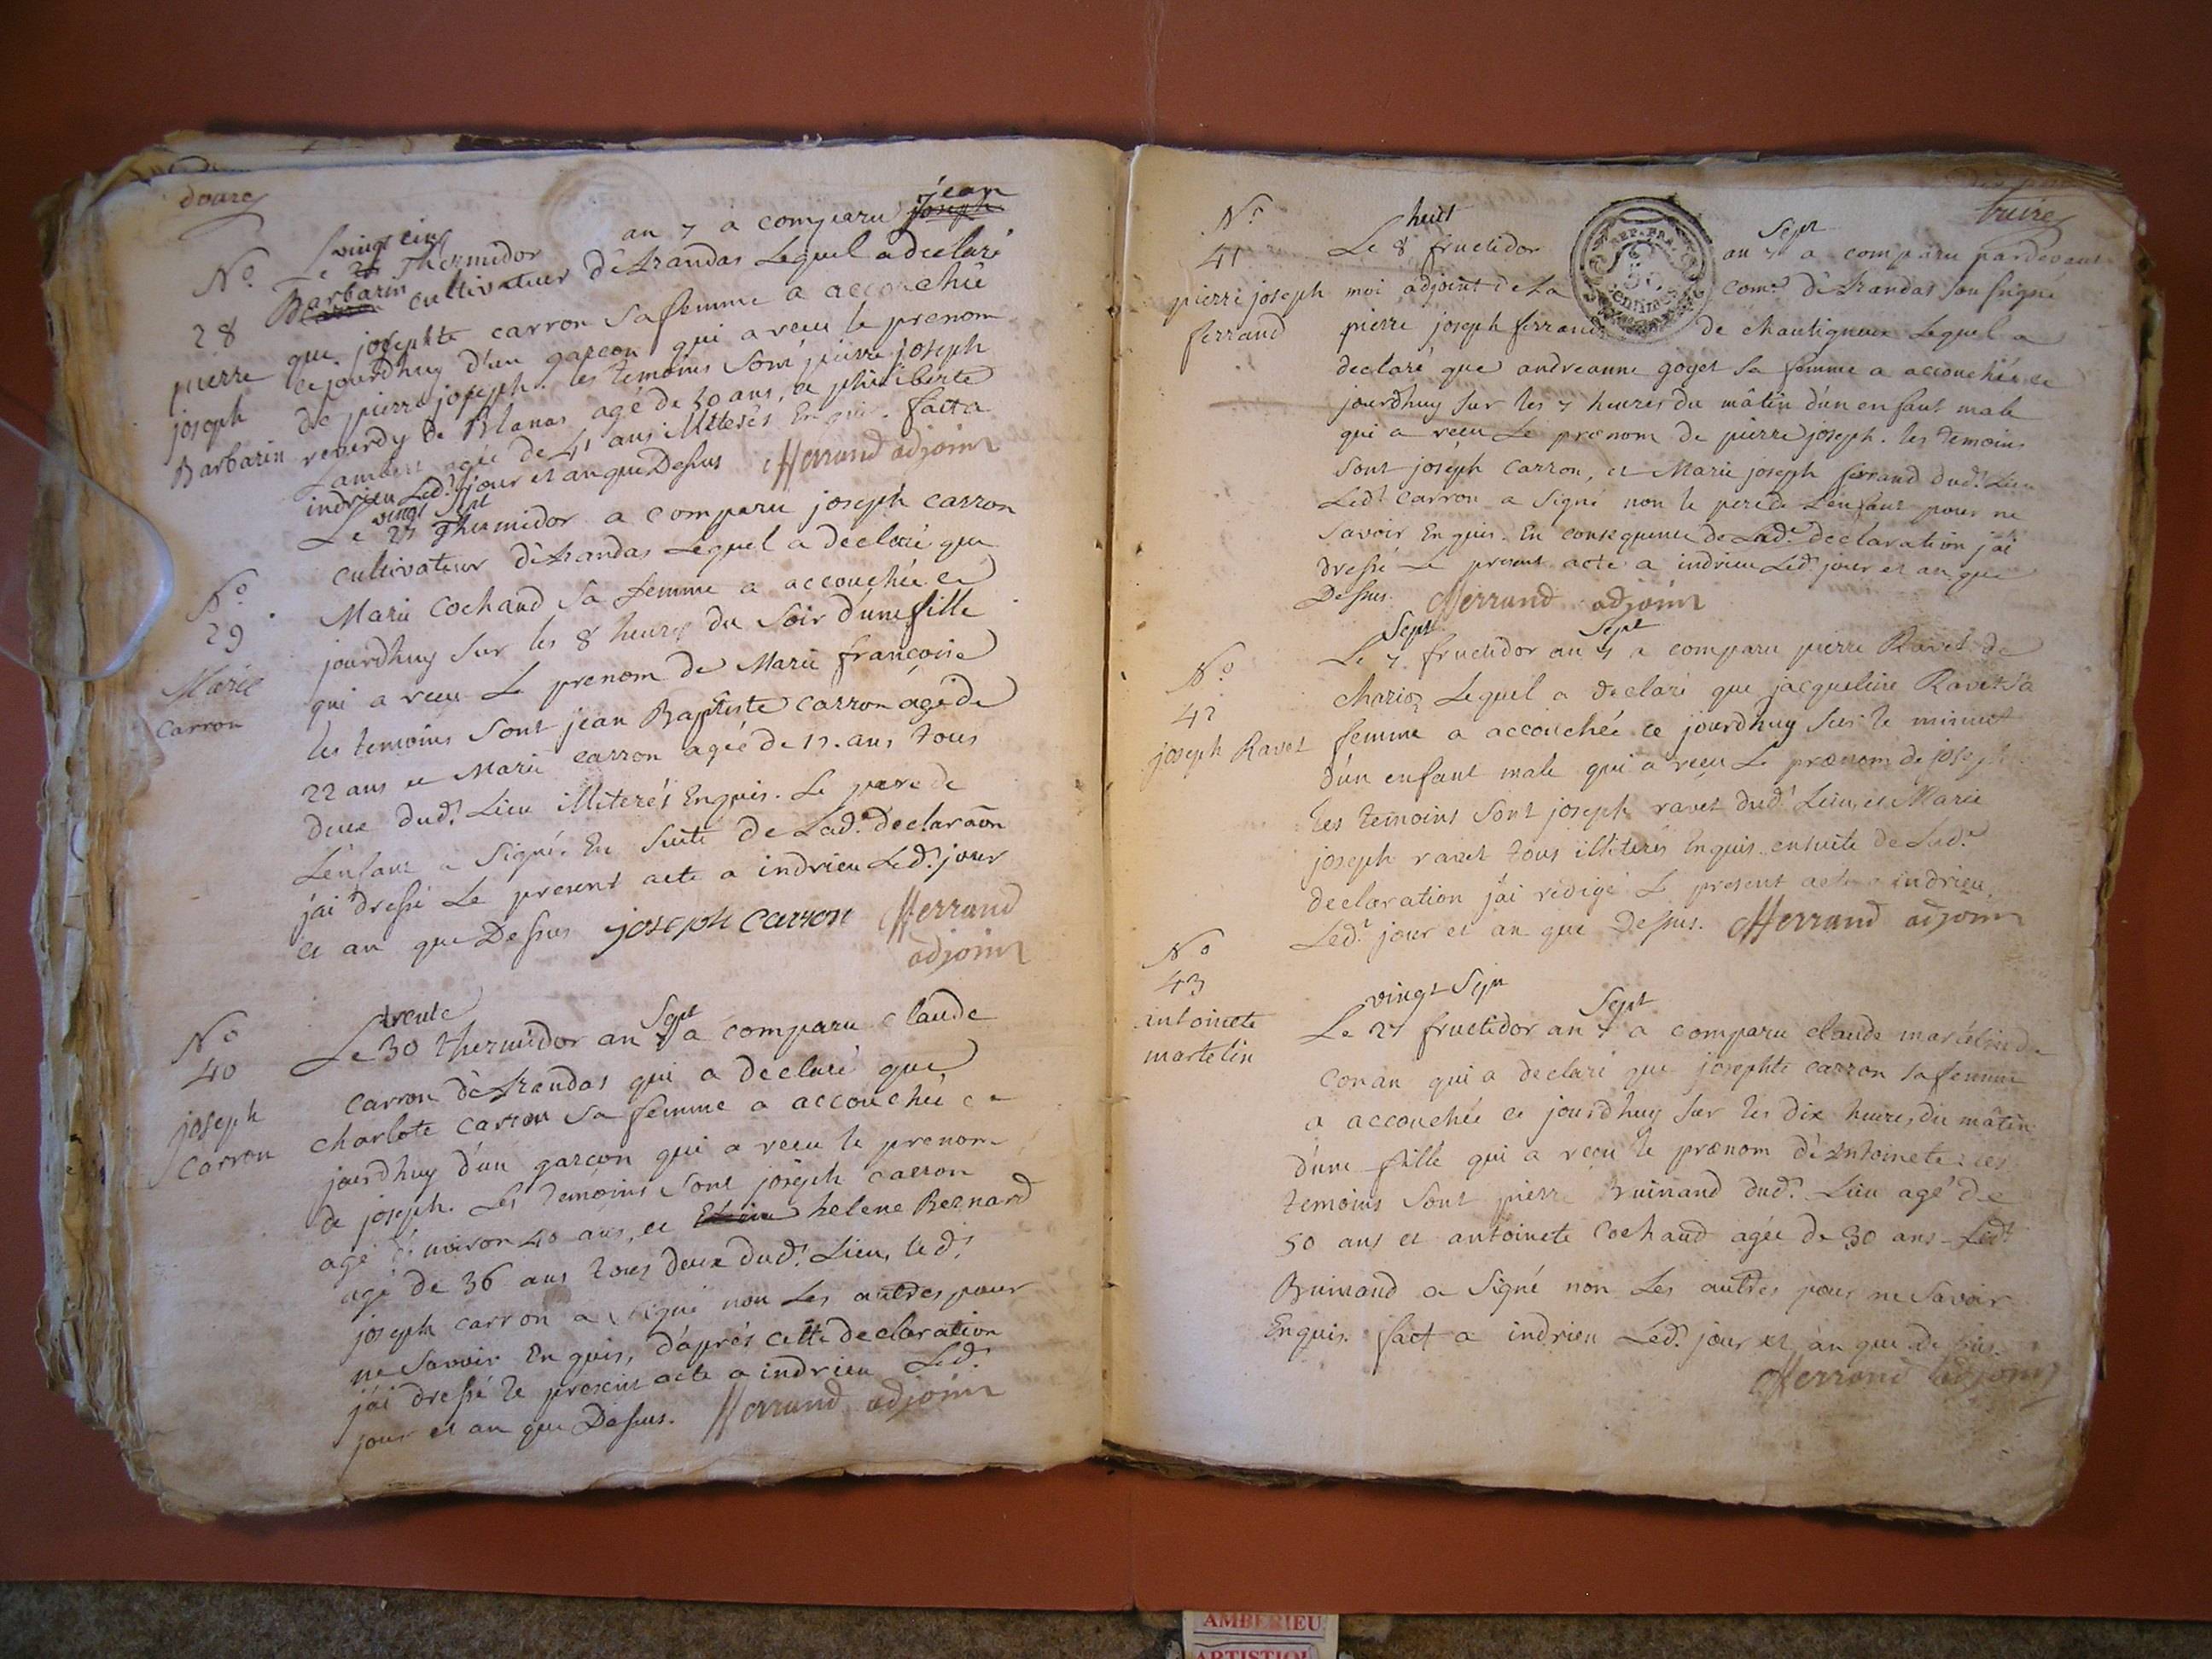 douze
jean
vingt cinq
N.o Le Thermidor an 7 a comparu joseph
Barbarin
28 cultivateur d'Arandas Lequel a declaré
pierre que josephte carron sa femme a accouchée
joseph ce jourdhuy d'un garcon qui a recu le prenom
Barbarin de pierre joseph. les temoins sont pierre joseph
reverdy de Blanas agé de 30 ans, et philiberte
Lambert agée de 41 ans illiterés Enquis. fait a
indrieu Led.t jour et an que Dessus Merrand adjoint
vingt sept
Le 27 Thermidor a comparu joseph carron
cultivateur d'Arandas Lequel a declaré que
N.o
29
Marie Cochand sa femme a accouchée ce
jourdhuy sur les 8 heures du soir d'une fille
Marie
qui a recu Le prenom de Marie francoise
Carron
les temoins sont jean Baptiste carron agé de
22 ans et Marie carron agée de 17. ans tous
deux dud.t Lieu illiterés Enquis. Le pere de
L'enfant a signé. En suite de Lad.e declaraon
j'ai dressé Le present acte a indrieu Led.t jour
et an que Dessus joseph carron Merrand
adjoint
trente
sept
N.o Le 30 thermidor an 7 a comparu claude
40
carron d'Arandas qui a declaré que
joseph charlote carron sa femme a accouchée ce
Carron jourdhuy d'un garcon qui a recu le prenom
de joseph. Les temoins sont joseph carron
agé d'environ 40 ans, et helene Bernard
agé de 36 ans tous deux dud.t Lieu, led.t
joseph carron a signé non Les autres pour
ne savoir Enquis, d'aprés cette declaration
j'ai dressé le present acte a indrieu Led.t
jour et an que Dessus. Merrand adjoint
treize
N.o
huit
sept
41 Le 8 fructidor an 7 a comparu pardevant
REP. FRA.
pierre joseph moi adjoint de La com.e d'Arandas sousigné
ferrand pierre joseph ferrand de chantigneux Lequel a
declaré que andreanne goyet sa femme a accouchée ce
jourdhuy sur les 7 heures du mâtin d'un enfant male
qui a reçu Le prænom de pierre joseph. les temoins
sont joseph carron, et Marie joseph ferrand dud.t Lieu
Led.t carron a signé non le pere de L'enfant pour ne
savoir Enquis. En consequence de Lad.e declaration j'ai
dressé Le present acte a indrieu Led.t jour et an que
Dessus. Merrand adjoint
sept sept
N.o Le 7 fructidor an 7 a comparu pierre Ravet de
42 Lequel a declaré que jacqueline Ravet sa
joseph Ravet femme a accouchée ce jourdhuy sur le minuit
d'un enfant male qui a reçu Le prænom de joseph
Les temoins sont joseph ravet dud.t Lieu, et Marie
joseph ravet tous illiterés Enquis. ensuite de Lad.e
declaration j'ai redigé Le present acte a indrieu
Led.t jour et an que Dessus. Merrand adjoint
N.o
43
vingt sept sept
antoinete Le 27 fructidor an 7 a comparu claude martelin de
martelin
conan qui a declaré que josephte carron sa femme
a accouchée ce jourdhuy sur les dix heures du mâtin
d'une fille qui a reçu le prænom d'Antoinete. les
temoins sont pierre Bruinand dud.t Lieu agé de
50 ans et antoinete Cochand agée de 30 ans Led.t
Bruinand a signé non Les autres pour ne savoir
Enquis. fait a indrieu Led.t jour et an que dessus.
Merrand adjoint
AMBERIEU